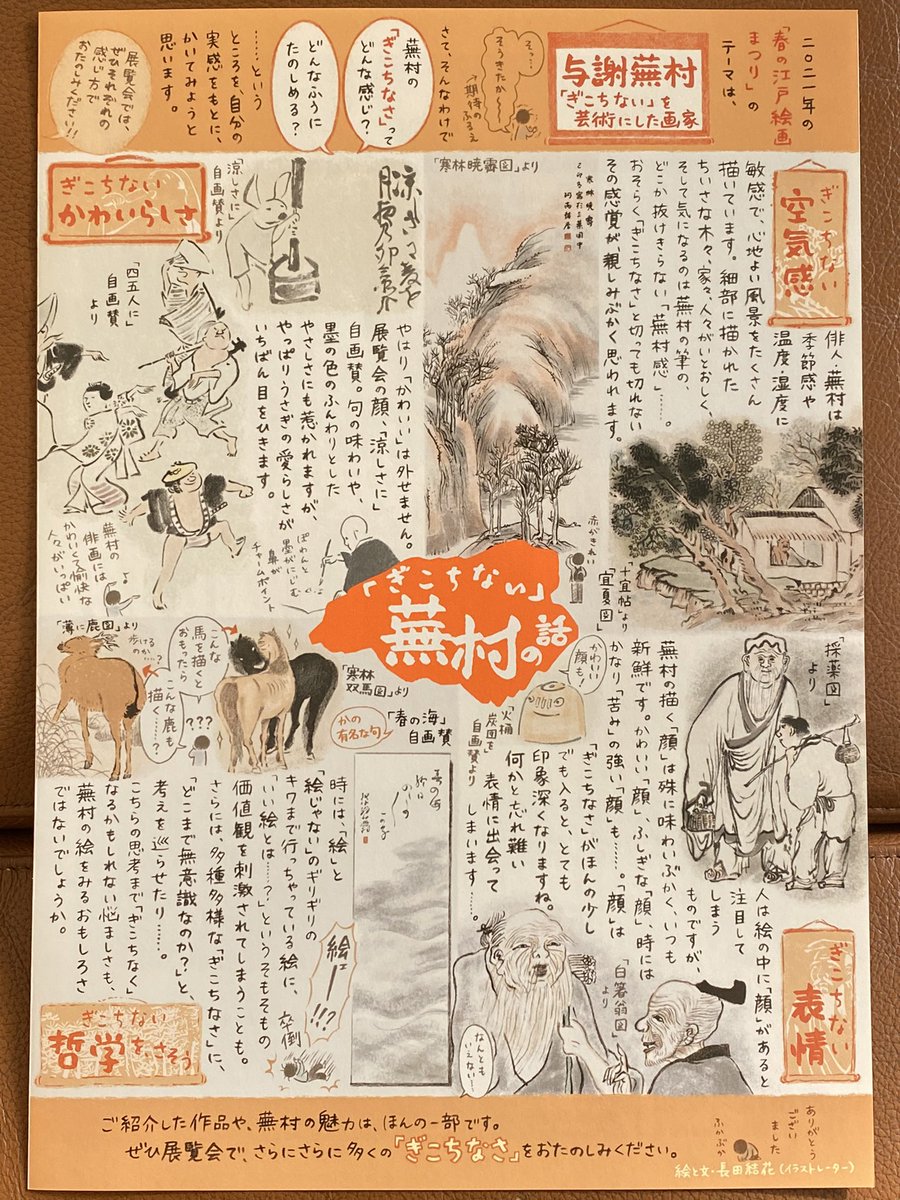 二〇二一年の
「春の江戸絵画
まつり」の
テーマは、
与謝蕪村
「ぎこちない」を
芸術にした画家
そっ…?
そうきたか〜
〈期待の
ふるえ
さて、そんなわけで
蕪村の
「ぎこちなさ」って
どんな感じ?
どんなふうに
たのしめる?
……という
ところを、自分の
実感をもとに、
かいてみようと
思います。
展覧会では、
ぜひそれぞれの
感じ方で
おたのしみください!!
ぎこちない
空気感
俳人・蕪村は
季節感や
温度・湿度に
敏感で、心地よい風景をたくさん
描いています。細部に描かれた
ちいさな木々、家々、人々がいとおしく、
そして気になるのは蕪村の筆の、
どこか抜けきらない「蕪村感」……。
おそらく「ぎこちなさ」と切っても切れない
その感覚が、親しみぶかく思われます。
「寒林暁霽図」より
寒林暁霽
赤がきれい
「十宜帖」より
「宜夏図」
ぎこちない
かわいらしさ
「涼しさに」
自画賛より
「四五人に」
自画賛
より
やはり「かわいい」は外せません。
展覧会の顔、「涼しさに」
自画賛。句の味わいや、
墨の色のふんわりとした
やさしさにも惹かれますが、
やっぱりうさぎの愛らしさが
いちばん目をひきます。
ぽわんと
墨がにじむ
鼻が
チャームポイント
蕪村の
俳画には
かわいくて愉快な
人々がいっぱい
「ぎこちない」
蕪村の話
「薄に鹿図」より
歩けるのか…?
こんな
馬を描くと
おもったら
こんな鹿も
描く……?
???
「寒林
双馬図」より
かの
有名な句
「春の海」
自画賛
かわいい
顔も!
「火桶
炭団を」
自画賛より
「採薬図」
より
ぎこちない
表情
人は絵の中に「顔」があると
注目して
しまう
ものですが、
蕪村の描く「顔」は殊に味わいぶかく、いつも
新鮮です。かわいい「顔」、ふしぎな「顔」、時には
かなり「苦み」の強い「顔」も……。「顔」は
「ぎこちなさ」がほんの少し
でも入ると、とても
印象深くなりますね。
何かと忘れ難い
表情に出会って
しまいます……。
「白箸翁図」
より
なんとも
いえない…。
時には、「絵」と
「絵じゃない」のギリギリの
キワまで行っちゃっている絵に、卒倒
「いい絵とは……?」というそもそもの
価値観を刺激されてしまうことも。
さらには、多種多様な「ぎこちなさ」に、
「どこまで無意識なのか?」と、
考えを巡らせたり……。
こちらの思考まで「ぎこちなく」
なるかもしれない悩ましさも、
蕪村の絵をみるおもしろさ
ではないでしょうか。
絵ェー!!?
ぎこちない
哲学を、さそう
ご紹介した作品や、蕪村の魅力は、ほんの一部です。
ぜひ展覧会で、さらにさらに多くの「ぎこちなさ」をおたのしみください。
ありがとう
ござい
ました
ふかぶか
絵と文・長田結花(イラストレーター)